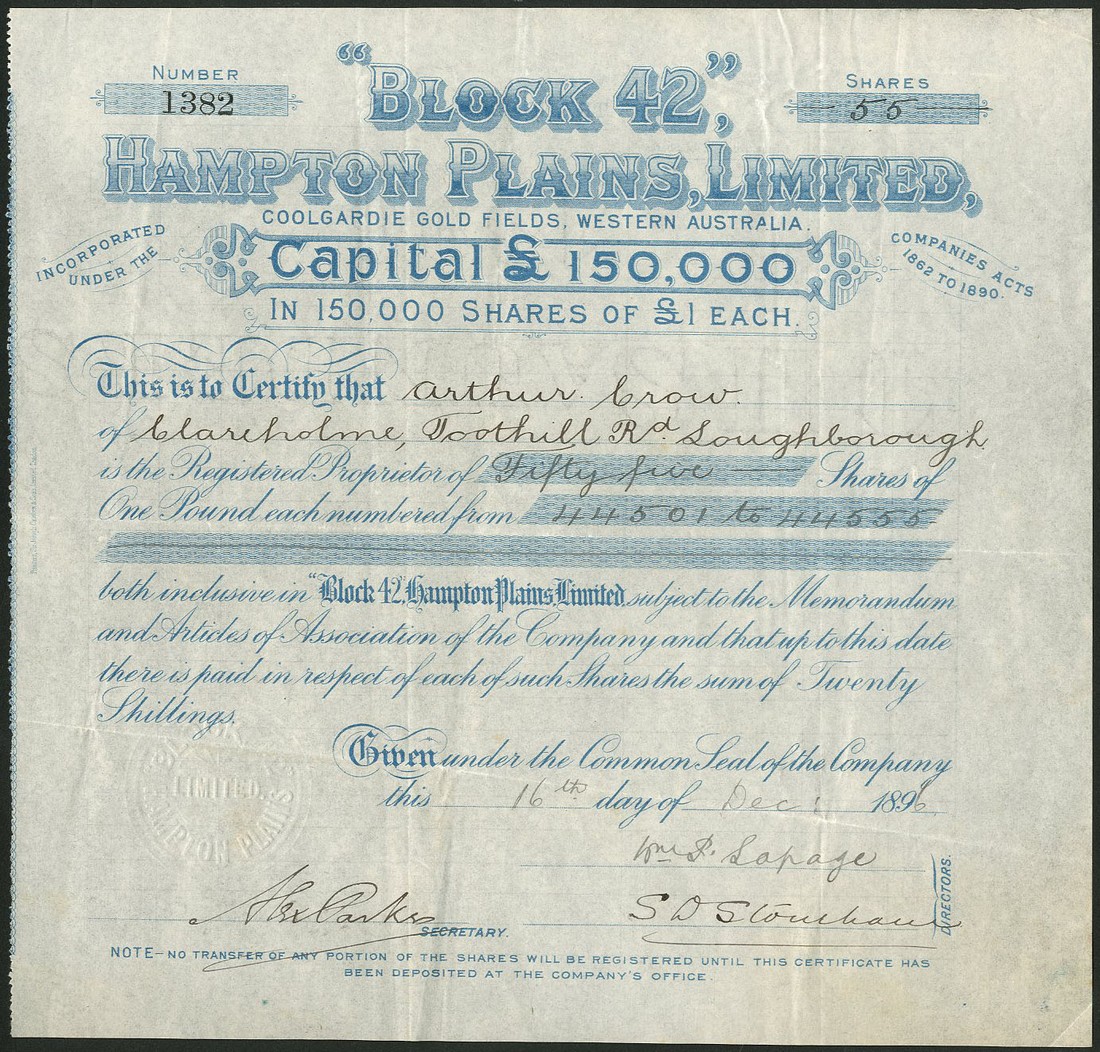 NUMBER
1382
SHARES
55
"BLOCK 42",
HAMPTON PLAINS, LIMITED,
COOLGARDIE GOLD FIELDS, WESTERN AUSTRALIA.
INCORPORATED
UNDER THE
Capital £ 150,000
COMPANIES ACTS
1862 TO 1890.
IN 150,000 SHARES OF £1 EACH.
This is to Certify that Arthur Crow.
of Clareholme, Toothill Rd. Loughborough
is the Registered Proprietor of Fifty five Shares of
One Pound each numbered from 44501 to 44555
both inclusive in "Block 42", Hampton Plains, Limited, subject to the Memorandum
and Articles of Association of the Company and that up to this date
there is paid in respect of each of such Shares the sum of Twenty
Shillings.
BLOCK 42
LIMITED.
HAMPTON PLAINS
Given under the Common Seal of the Company
this 16th day of Dec 1896
Wm P. Lapage
DIRECTORS.
SECRETARY.
NOTE—NO TRANSFER OF ANY PORTION OF THE SHARES WILL BE REGISTERED UNTIL THIS CERTIFICATE HAS
BEEN DEPOSITED AT THE COMPANY'S OFFICE.